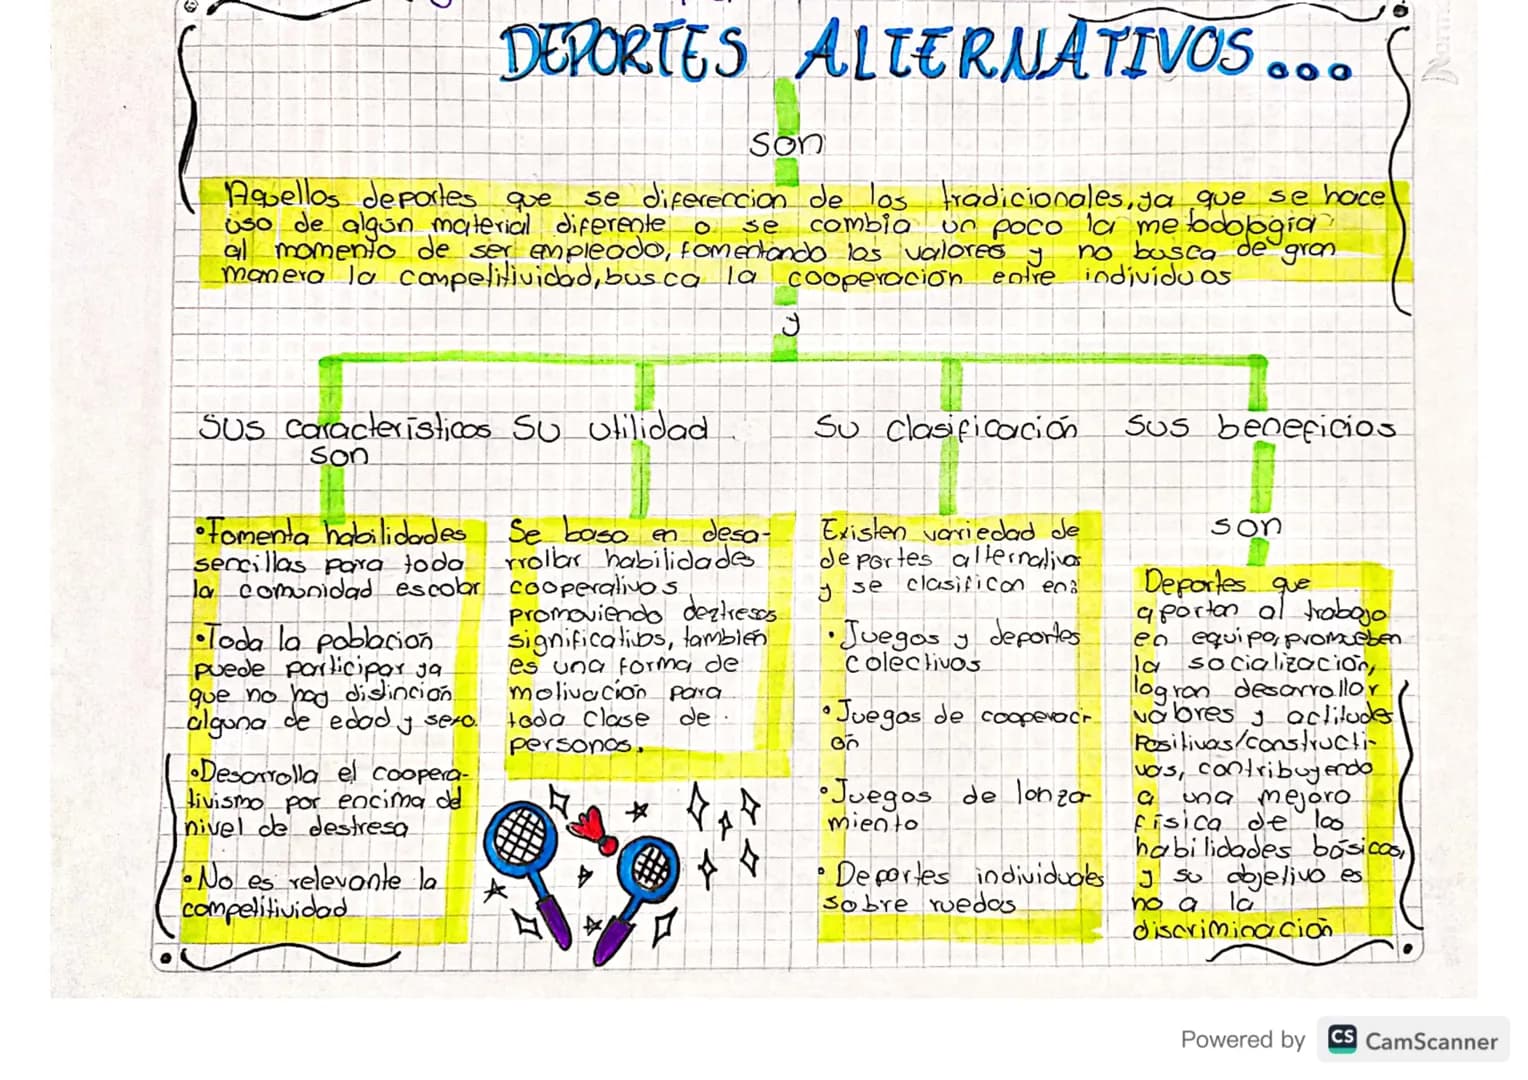 DEPORTES ALTERNATIVOS...
son
Aquellos deportes que se diferereccion de los tradicionales, ya que se hace
uso de algún material diferente o se combia un poco la metodologia
al momento de ser empleado, fomentando los valores y no busca de gran
manera la competitividad, busca la cooperación entre individuos
y
Sus características
son
•Fomenta habilidades
sencillas para toda
la comunidad escolar
•Toda la poblacion
puede participar ya
que no hay distincion
alguna de edad y sexo.
•Desarrolla el coopera-
tivismo por encima del
nivel de destresa
•No es relevante la
competitividad
Su utilidad
Se basa en desa-
rrollar habilidades
cooperativos
promoviendo deztresas
significatibs, también
es una forma de
motivación para
toda clase de
personas.
Su clasificación
Existen variedad de
deportes alternativos
y se clasifican en:
•Juegos y deportes
colectivos
•Juegos de cooperaci-
ón
•Juegos de lanza
miento
•Deportes individuales
sobre ruedas
Sus beneficios
son
Deportes que
aportan al trabajo
en equipo, promueben
la socialización,
logran desarrollar
valores y actitudes
Positivas/constructi-
vas, contribuyendo
a una mejora
física de las
habilidades básicas,
y su objetivo es
no a la
discriminación
Powered by CS CamScanner